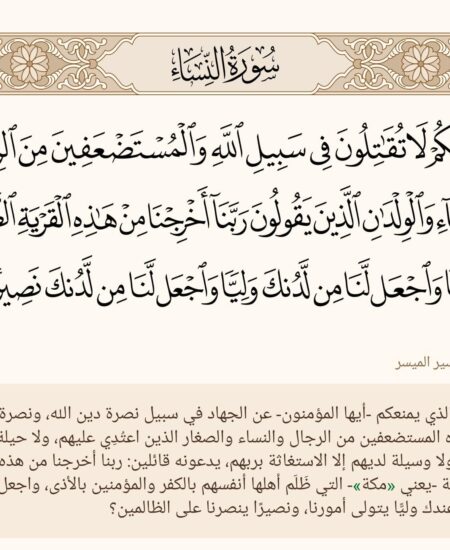 سُورَةُ النِّسَاءِ
لَا تُقَٰتِلُونَ فِي سَبِيلِ ٱللَّهِ وَٱلْمُسْتَضْعَفِينَ مِنَ
وَٱلْوِلْدَٰنِ ٱلَّذِينَ يَقُولُونَ رَبَّنَآ أَخْرِجْنَا مِنْ هَٰذِهِ ٱلْقَرْيَةِ
وَٱجْعَل لَّنَا مِن لَّدُنكَ وَلِيًّا وَٱجْعَل لَّنَا مِن لَّدُنكَ
الميسر
يمنعكم -أيها المؤمنون- عن الجهاد في سبيل نصرة دين الله، ونصرة
المستضعفين من الرجال والنساء والصغار الذين اعتُدِي عليهم، ولا حيلة
ولا وسيلة لديهم إلا الاستغاثة بربهم، يدعونه قائلين: ربنا أخرجنا من هذه
-يعني «مكة»- التي ظَلَم أهلها أنفسهم بالكفر والمؤمنين بالأذى، واجعل
وليًا يتولى أمورنا، ونصيرًا ينصرنا على الظالمين؟